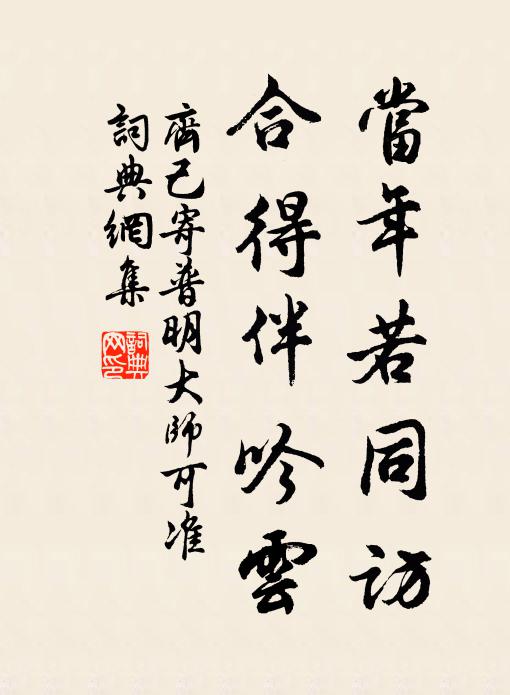 當年若同訪
合得伴吟雲
齊己寄普明大師可准
詞典網集
詞典
网印